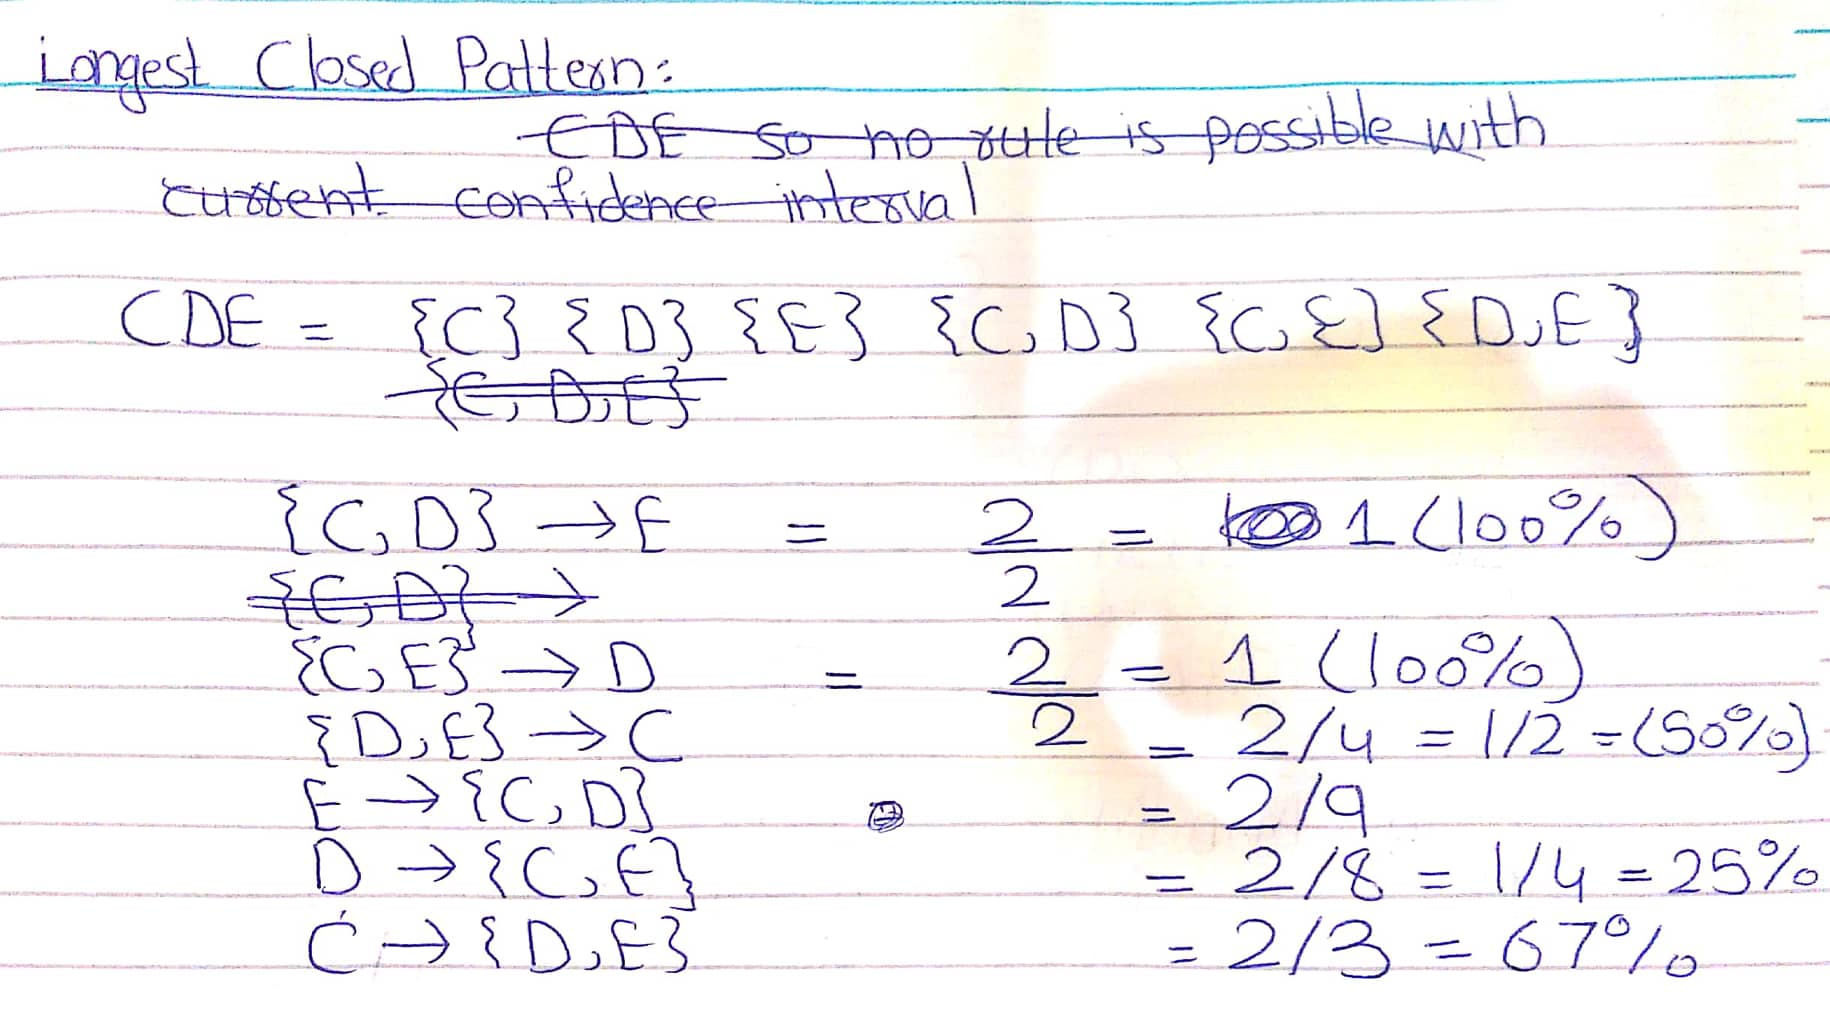 Longest Closed Pattern:
CDE so no rule is possible with
current confidence interval
CDE = {C} {D} {E} {C,D} {C,E} {D,E}
{C,D,E}
{C,D} → E = 2/2 = 1 (100%)
{C,D} →
{C,E} → D = 2/2 = 1 (100%)
{D,E} → C = 2/4 = 1/2 = (50%)
E → {C,D} = 2/9
D → {C,E} = 2/8 = 1/4 = 25%
C → {D,E} = 2/3 = 67%